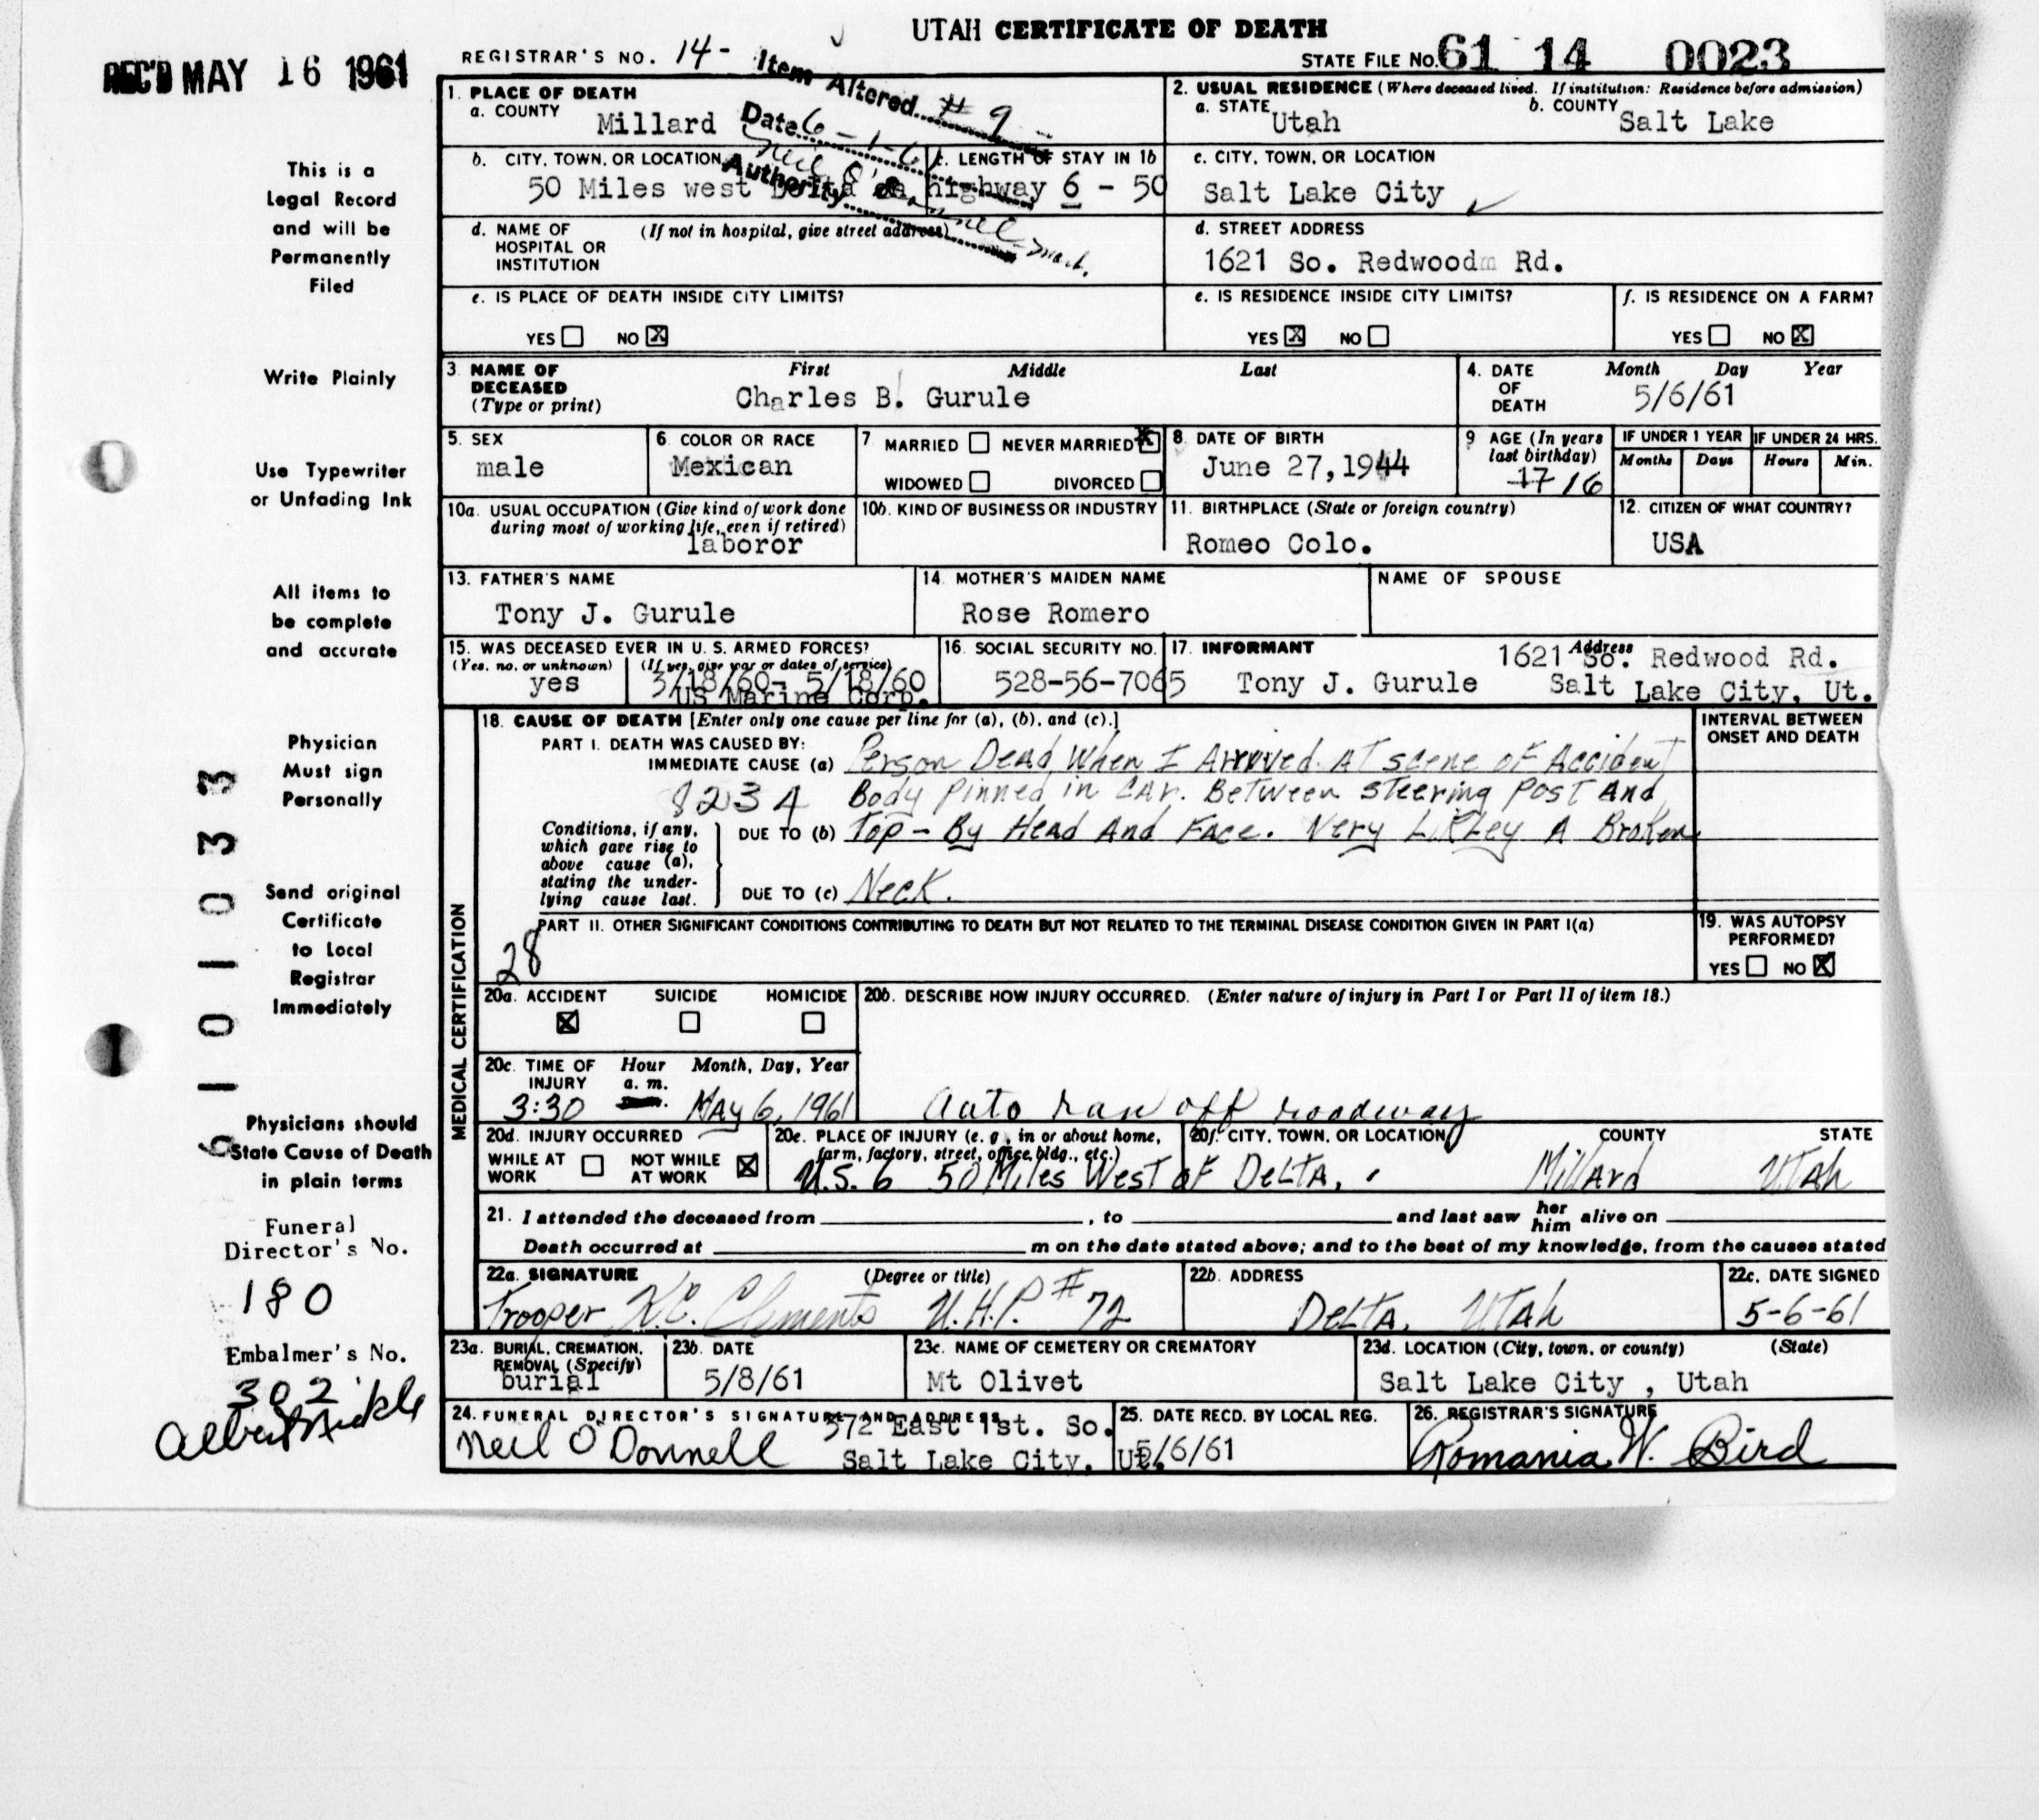 UTAH CERTIFICATE OF DEATH
REC'D MAY 16 1961
REGISTRAR'S NO. 14-
STATE FILE NO. 61 14 0023
Item Altered # 9
Date 6-1-6
Authority Neil O'Donnel
This is a
Legal Record
and will be
Permanently
Filed
Write Plainly
Use Typewriter
or Unfading Ink
All items to
be complete
and accurate
Physician
Must sign
Personally
Send original
Certificate
to Local
Registrar
Immediately
Physicians should
State Cause of Death
in plain terms
Funeral
Director's No.
180
Embalmer's No.
302
Albert Mickle
1. PLACE OF DEATH
a. COUNTY Millard
b. CITY, TOWN, OR LOCATION
c. LENGTH OF STAY IN 1b
50 Miles west Delta on highway 6 - 50
d. NAME OF (If not in hospital, give street address)
HOSPITAL OR
INSTITUTION
e. IS PLACE OF DEATH INSIDE CITY LIMITS?
YES NO X
2. USUAL RESIDENCE (Where deceased lived. If institution: Residence before admission)
a. STATE Utah b. COUNTY Salt Lake
c. CITY, TOWN, OR LOCATION
Salt Lake City
d. STREET ADDRESS
1621 So. Redwoodm Rd.
e. IS RESIDENCE INSIDE CITY LIMITS?
YES X NO
f. IS RESIDENCE ON A FARM?
YES NO X
3. NAME OF First Middle Last
DECEASED
(Type or print) Charles B. Gurule
4. DATE Month Day Year
OF
DEATH 5/6/61
5. SEX
male
6. COLOR OR RACE
Mexican
7. MARRIED NEVER MARRIED X
WIDOWED DIVORCED
8. DATE OF BIRTH
June 27, 1944
9 AGE (In years
last birthday)
17 16
IF UNDER 1 YEAR IF UNDER 24 HRS.
Months Days Hours Min.
10a. USUAL OCCUPATION (Give kind of work done
during most of working life, even if retired)
laboror
10b. KIND OF BUSINESS OR INDUSTRY
11. BIRTHPLACE (State or foreign country)
Romeo Colo.
12. CITIZEN OF WHAT COUNTRY?
USA
13. FATHER'S NAME
Tony J. Gurule
14. MOTHER'S MAIDEN NAME
Rose Romero
NAME OF SPOUSE
15. WAS DECEASED EVER IN U. S. ARMED FORCES?
(Yes, no, or unknown) (If yes, give war or dates of service)
yes 3/18/60- 5/18/60
US Marine Corp.
16. SOCIAL SECURITY NO.
528-56-7065
17. INFORMANT Address
Tony J. Gurule
1621 So. Redwood Rd.
Salt Lake City, Ut.
MEDICAL CERTIFICATION
18. CAUSE OF DEATH [Enter only one cause per line for (a), (b), and (c).]
INTERVAL BETWEEN
ONSET AND DEATH
PART I. DEATH WAS CAUSED BY:
IMMEDIATE CAUSE (a) Person Dead When I Arrived. At scene of Accident
8234 Body Pinned in Car. Between Steering Post And
DUE TO (b) Top - By Head And Face. Very Likley A Broken
DUE TO (c) Neck.
Conditions, if any,
which gave rise to
above cause (a),
stating the under-
lying cause last.
PART II. OTHER SIGNIFICANT CONDITIONS CONTRIBUTING TO DEATH BUT NOT RELATED TO THE TERMINAL DISEASE CONDITION GIVEN IN PART I(a)
28
19. WAS AUTOPSY
PERFORMED?
YES NO X
20a. ACCIDENT SUICIDE HOMICIDE
X
20b. DESCRIBE HOW INJURY OCCURRED. (Enter nature of injury in Part I or Part II of item 18.)
Auto ran off roadway
20c. TIME OF Hour Month, Day, Year
INJURY a. m.
3:30 May 6, 1961
20d. INJURY OCCURRED
WHILE AT WORK NOT WHILE AT WORK X
20e. PLACE OF INJURY (e. g., in or about home,
farm, factory, street, office bldg., etc.)
20f. CITY, TOWN, OR LOCATION COUNTY STATE
U.S. 6 50 Miles West of Delta, Millard Utah
21. I attended the deceased from , to and last saw her him alive on
Death occurred at m on the date stated above; and to the best of my knowledge, from the causes stated
22a. SIGNATURE (Degree or title)
Trooper K.C. Clements U.H.P. #72
22b. ADDRESS
Delta, Utah
22c. DATE SIGNED
5-6-61
23a. BURIAL, CREMATION,
REMOVAL (Specify)
burial
23b. DATE
5/8/61
23c. NAME OF CEMETERY OR CREMATORY
Mt Olivet
23d. LOCATION (City, town, or county) (State)
Salt Lake City , Utah
24. FUNERAL DIRECTOR'S SIGNATURE AND ADDRESS
Neil O'Donnell 372 East 1st. So.
Salt Lake City, Ut.
25. DATE RECD. BY LOCAL REG.
5/6/61
26. REGISTRAR'S SIGNATURE
Romania W. Bird